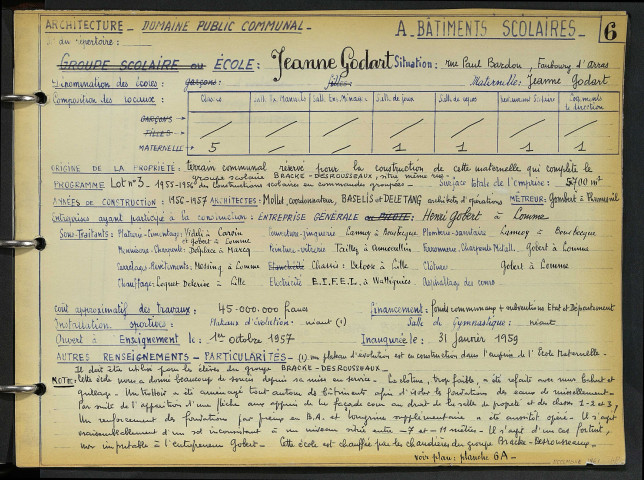 ARCHITECTURE - DOMAINE PUBLIC COMMUNAL - A - BÂTIMENTS SCOLAIRES - 6
N° au répertoire :
GROUPE SCOLAIRE ou ÉCOLE : Jeanne Godart Situation : rue Paul Bardou, Faubourg d'Arras
Dénomination des écoles : garçons : filles : Maternelle : Jeanne Godart
Composition des locaux : Classes Salle Tr. Manuels Salle Ens. Ménager Salle de jeux Salle de repos Restaurant Scolaire Logements de direction
GARÇONS
FILLES
MATERNELLE 5 / / 1 1 1 1
ORIGINE DE LA PROPRIÉTÉ : terrain communal réservé pour la construction de cette maternelle qui complète le
groupe scolaire BRACKE-DESROUSSEAUX, situé même rue -
PROGRAMME Lot n° 3 - 1955-1956 des Constructions scolaires en commandes groupées - Surface totale de l'emprise : 5700 m²
ANNÉES DE CONSTRUCTION : 1956-1957 ARCHITECTES : Mollet, coordonnateur, BASELIS et DELETANG architectes d'opérations MÉTREUR : Gombert à
Entreprises ayant participé à la construction : ENTREPRISE GÉNÉRALE ou PILOTE : Henri Gobert à Lomme
Sous-Traitants : Plâtrerie-Cimentage : à Carvin Couverture-zinguerie Lannoy à Bourbecque Plomberie-sanitaire Lannoy à Bourbecque
Gobert à Lomme
Menuiserie-Charpente : Delplace à Marcq Peinture-vitrerie Taillez à Annoeullin Ferronnerie-Charpente Métall. Gobert à Lomme
Carrelages-Revêtements : à Lomme Etanchéité Chassis : à Lille Clôtures Gobert à Lomme
Chauffage : Loquet Delerive à Lille Electricité E.I.F.E.L. à Wattignies Asphaltage des cours
coût approximatif des travaux : 45.000.000 francs Financement : fonds communaux + subventions Etat et Département
Installations sportives : Plateaux d'évolution : néant (1) Salle de Gymnastique : néant
Ouvert à Enseignement le : 1er octobre 1957 Inaugurée le : 31 Janvier 1959
AUTRES RENSEIGNEMENTS - PARTICULARITÉS - (1) un plateau d'évolution est en construction dans l'emprise de l'École Maternelle -
Il doit être utilisé pour les élèves du groupe BRACKE-DESROUSSEAUX -
NOTE : cette école nous a donné beaucoup de soucis depuis sa mise en service - La clôture, trop faible, a été refaite avec mur bahut et
grillage - Un trottoir a été aménagé tout autour des bâtiments afin d'isoler les fondations des eaux de ruissellement -
Par suite de l'apparition d'une flèche sans appui de la façade cour au droit de la salle de propreté et des classes 1-2 et 3,
Un renforcement des fondations par pieux en B.A. et longrine supplémentaire a été aussitôt opéré - Il s'agit
vraisemblablement d'un sol inconsistant à un niveau situé entre -7 et -11 mètres - Il s'agit d'un cas fortuit,
non imputable à l'entrepreneur Gobert - Cette école est chauffée par les chaudières du groupe Bracke-Desrousseaux -
voir plan : planche 6A -